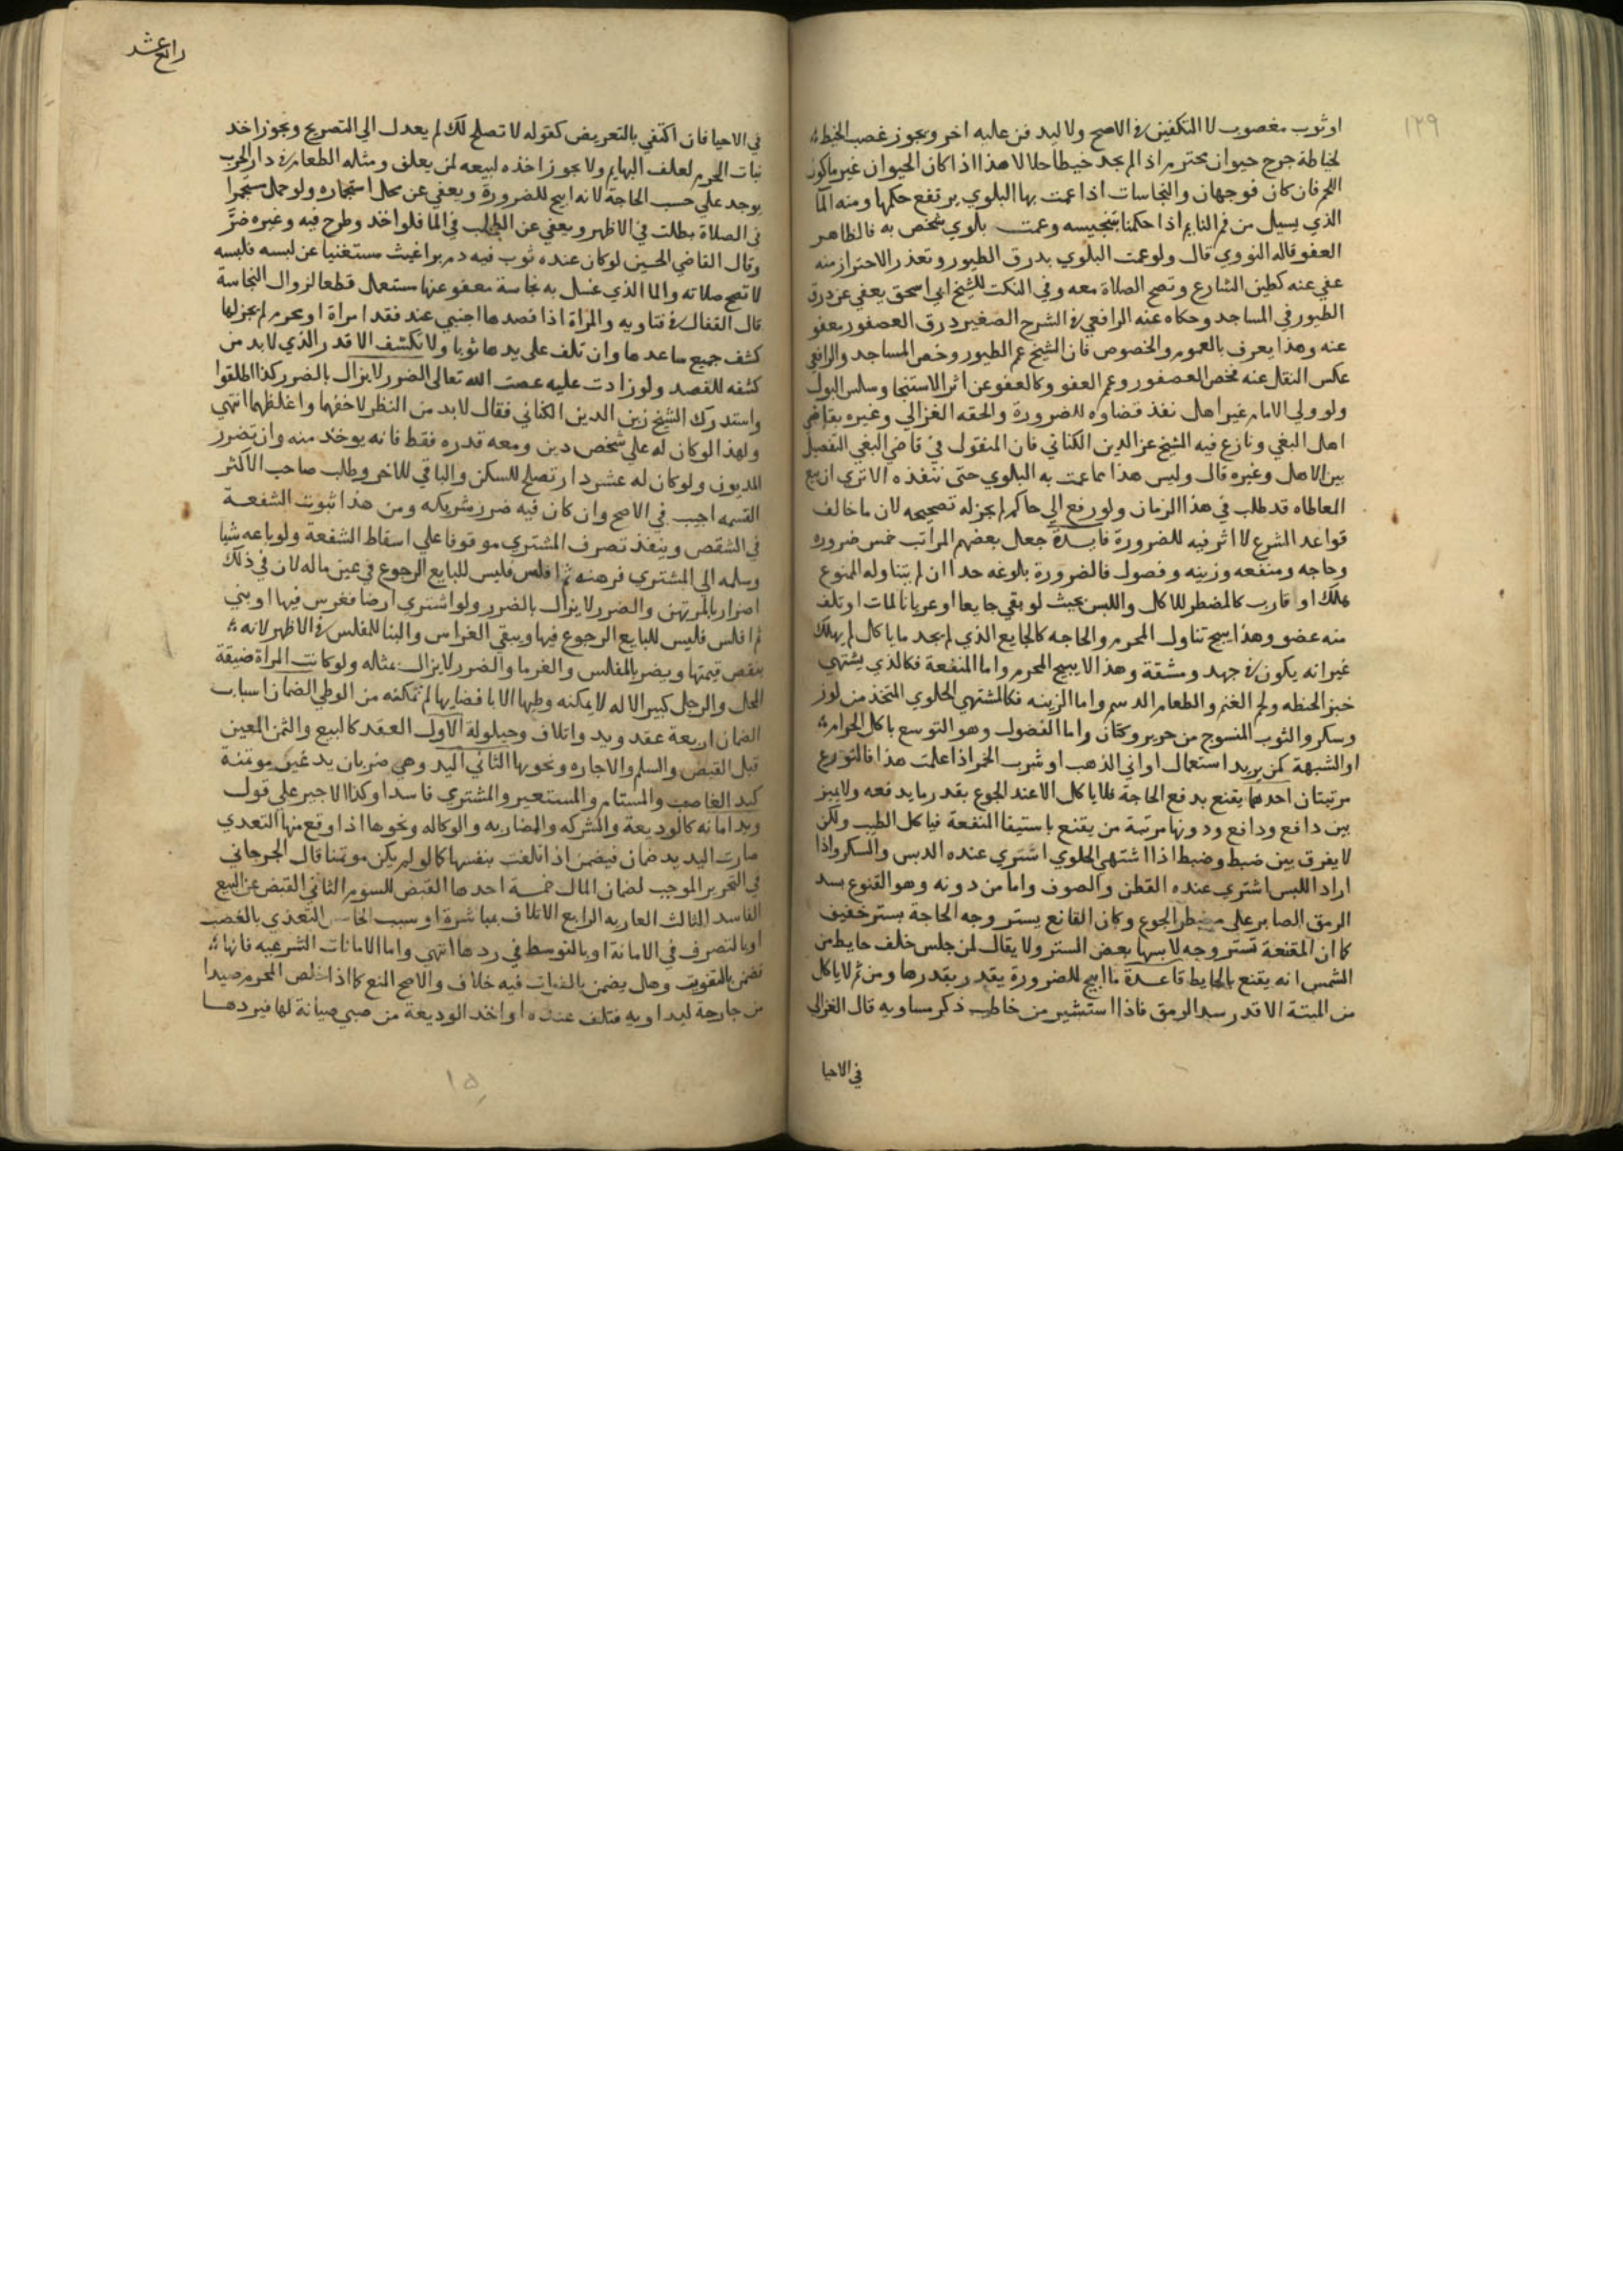 ١٢٩
او ثوب مغصوب لا التكفين في الاصح ولا ليد فن عليه اخر ويجوز غصب الخيط
لخياطة جرح حيوان محترم اذا لم يجد خيطا حلالا هذا اذا كان الحيوان غير ماكول
اللحم فان كان فوجهان والنجاسات اذا عمت بها البلوي يرتفع حكمها ومنه الما
الذي يسيل من فم النايم اذا حكمنا بتنجيسه وعمت بلوي شخص به فالظاهر
العفو قاله النووي قال ولو عمت البلوي بدرق الطيور وتعذر الاحتراز منه
عفي عنه كطين الشارع وتصح الصلاة معه وفي النكت للشيخ ابي اسحق يعفي عن درق
الطيور في المساجد وحكاه عنه الرافعي في الشرح الصغير درق العصفور يعفو
عنه وهذا يعرف بالعموم والخصوص فان الشيخ عم الطيور وخص المساجد والرافعي
عكس النقل عنه فخص العصفور وعم العفو وكالعفو عن اثر الاستنجا وسلس البول
ولو ولي الامام غير اهل نفذ قضاوه للضرورة والحقه الغزالي وغيره بقاضي
اهل البغي ونازع فيه الشيخ عز الدين الكناني فان المنقول في قاضي البغي التفصيل
بين الاهل وغيره قال وليس هذا مما عمت به البلوي حتى ننفذه الا تري ان بيع
المعاطاه قد طلب في هذا الزمان ولو رفع الي حاكم لم يجز له تصحيحه لان ما خالف
قواعد الشرع لا اثر فيه للضرورة فايدة جعل بعضهم المراتب خمس ضروره
وحاجه ومنفعه وزينه وفصول فالضرورة بلوغه حدا ان لم يتناوله الممنوع
هلك او قارب كالمضطر للاكل واللبس بحيث لو بقي جايعا او عريانا لمات او تلف
منه عضو وهذا يبيح تناول المحرم والحاجه كالجايع الذي لم يجد ما ياكل لم يهلك
غير انه يكون في جهد ومشقة وهذا لا يبيح المحرم واما المنفعة فكالذي يشتهي
خبز الحنطه ولحم الغنم والطعام الدسم واما الزينه فكالمشتهي الحلوي المتخذ من لوز
وسكر والثوب المنسوج من حرير وكتان واما الفضول وهو التوسع باكل الحرام
او الشبهة كمن يريد استعمال اواني الذهب او شرب الخمر اذا علمت هذا فالتورع
مرتبتان احدهما يقنع بدفع الحاجة فلا ياكل الا عند الجوع بقدر ما يدفعه ولا يميز
بين دافع ودافع ودونها مرتبة من يقنع باستيفا المنفعة فياكل الطيب ولكن
لا يفرق بين ضبط وضبط اذا اشتهي الحلوي اشتري عنده الدبس والسكر واذا
اراد اللبس اشتري عنده القطن والصوف واما من دونه وهو القنوع بسد
الرمق الصابر على مضطر الجوع وكان القانع يستر وجه الحاجة بستر خفيف
كما ان المقنعة تستر وجه لابسها بعض الستر ولا يقال لمن جلس خلف حايط من
الشمس انه يقنع بالحايط قاعدة ما ابيح للضرورة يقدر بقدرها ومن ثم لا ياكل
من الميتة الا قدر سد الرمق فاذا استشير من خاطب ذكر مساويه قال الغزالي
في الاحيا
رابع عشر
في الاحيا فان اكتفي بالتعريض كقوله لا تصلح لك لم يعدل الي التصريح ويجوز اخد
نبات الحرم لعلف البهايم ولا يجوز اخذه لبيعه لمن يعلف ومثله الطعام في دار الحرب
يوجد علي حسب الحاجة لانه ابيح للضرورة ويعفي عن محل استجماره ولو حمل مستجمرا
في الصلاة بطلت في الاظهر ويعفي عن الطحلب في الما فلو اخد وطرح فيه وغيره ضر
وقال القاضي الحسين لو كان عنده ثوب فيه دم براغيث مستغنيا عن لبسه فلبسه
لا تصح صلاته والما الذي غسل به نجاسة معفو عنها مستعمل قطعا لزوال النجاسة
قال القفال في فتاويه والمراة اذا فصدها اجنبي عند فقد امراة او محرم لم يجز لها
كشف جميع ساعدها وان تلف على يدها ثوبا ولا تكشف الا قدر الذي لا بد من
كشفه للفصد ولو زادت عليه عصت الله تعالى الضرر لا يزال بالضرر كذا اطلقوا
واستدرك الشيخ زين الدين الكناني فقال لا بد من النظر لاخفهما واغلظهما انتهي
ولهذا لو كان له علي شخص دين ومعه قدره فقط فانه يوخذ منه وان تضرر
المديون ولو كان له عشر دار تصلح للسكن والباقي للاخر وطلب صاحب الاكثر
القسمه اجيب في الاصح وان كان فيه ضرر شريكه ومن هذا ثبوت الشفعة
في الشقص وينفذ تصرف المشتري موقوفا علي اسقاط الشفعة ولو باعه شيا
وسلمه الي المشتري فرهنه ثم افلس فليس للبايع الرجوع في عين ماله لان في ذلك
اضرار بالمرتهن والضرر لا يزال بالضرر ولو اشتري ارضا فغرس فيها او بني
ثم افلس فليس للبايع الرجوع فيها ويبقي الغراس والبنا للمفلس في الاظهر لانه
ينقص قيمتها ويضر بالمفلس والغرما والضرر لا يزال بمثاله ولو كانت المراة ضيقة
المحل والرجل كبير الاله لا يمكنه وطيها الا بافضايها لم تمكنه من الوطي الضمان اسباب
الضمان اربعة عقد ويد واتلاف وحيلولة الاول العقد كالبيع والثمن المعين
قبل القبض والسلم والاجاره ونحوها الثاني اليد وهي ضربان يد غير موتمنة
كيد الغاصب والمستام والمستعير والمشتري فاسدا وكذا الاجير علي قول
ويد امانه كالوديعة والشركه والمضاربه والوكاله ونحوها اذا وقع منها التعدي
صارت اليد يد ضمان فيضمن اذا تلفت بنفسها كما لو لم يكن موتمنا قال الجرجاني
في التحرير الموجب لضمان المال خمسة احدها القبض للسوم الثاني القبض عن البيع
الفاسد الثالث العاريه الرابع الاتلاف بمباشرة او سبب الخامس التعدي بالغصب
او بالتصرف في الامانة او بالتوسط في ردها انتهي واما الامانات الشرعيه فانها
تضمن بالتفويت وهل يضمن بالفوات فيه خلاف والاصح المنع كما اذا خلص المحرم صيدا
من جارحة ليداويه فتلف عنده او اخذ الوديعة من صبي صيانة لها فيردها
١٥